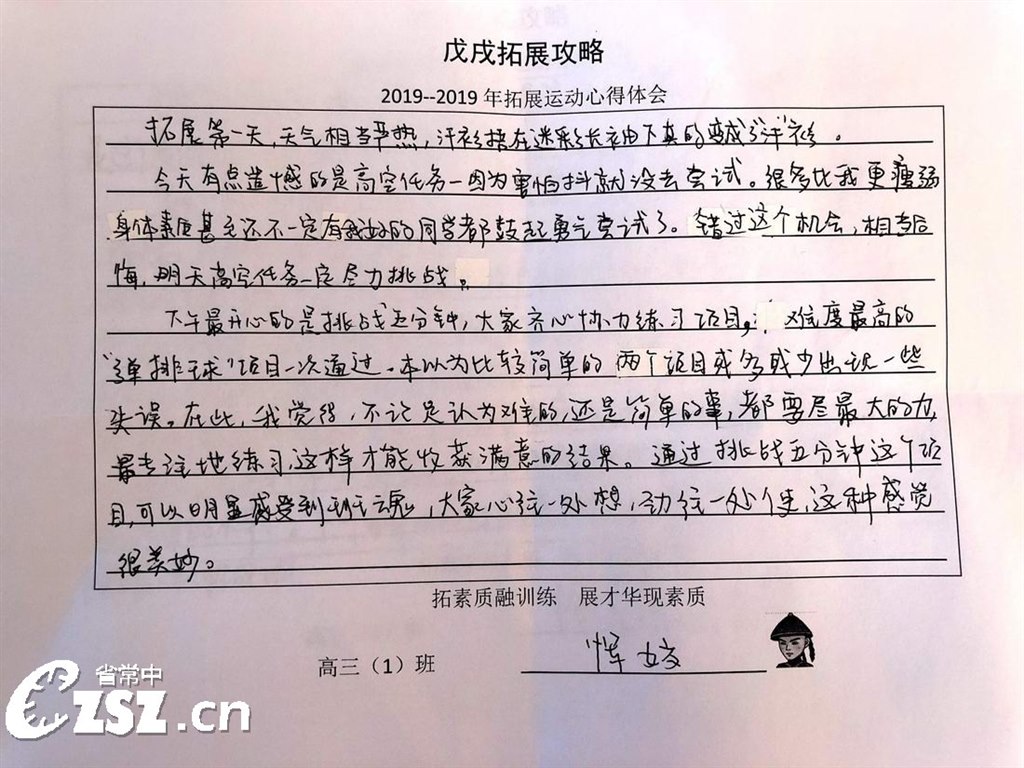 戊戌拓展攻略
2019--2019 年拓展运动心得体会
拓展第一天，天气相当炎热，汗衫捂在迷彩长袖下真的变成了“汗”衫。
今天有点遗憾的是高空任务—因为害怕抖就没去尝试。很多比我更瘦弱
身体素质甚至还不一定有我好的同学都鼓起勇气尝试了。错过这个机会，相当后
悔，明天高空任务一定尽力挑战。
下午最开心的是挑战五分钟，大家齐心协力练习项目，难度最高的
“弹排球”项目一次通过。本以为比较简单的两个项目或多或少出现一些
失误。在此，我觉得，不论是认为难的，还是简单的事，都要尽最大的力，
最专注地练习，这样才能收获满意的结果。通过挑战五分钟这个项
目，可以明显感受到班魂，大家心往一处想，劲往一处使，这种感觉
很美妙。
拓素质融训练 展才华现素质
高三（1）班
省常中
CZSZ.cn